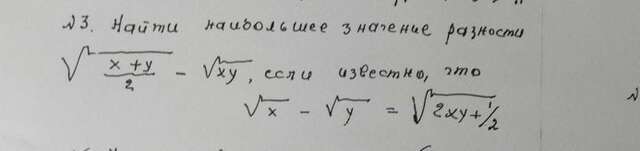 №3. Найти наибольшее значение разности
√(x+y)/2 - √xy, если известно, что
√x - √y = √2xy+1/2